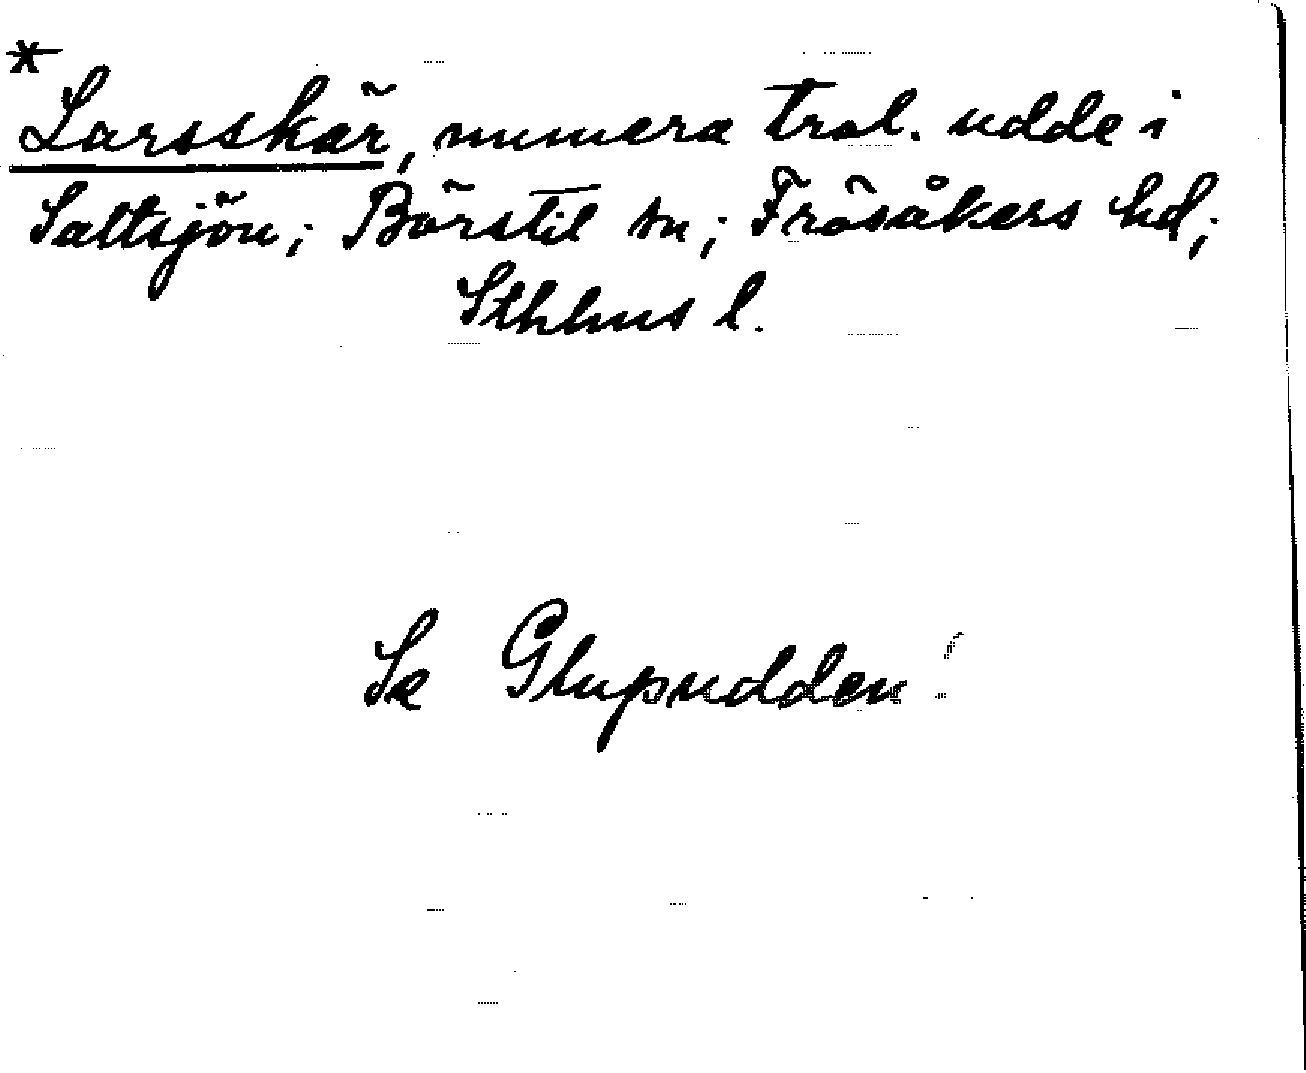 *
Larsskär, numera trol. udde i
Saltsjön; Börstil sn; Frösåkers hd;
Sthlms l.
Se Glupudden!